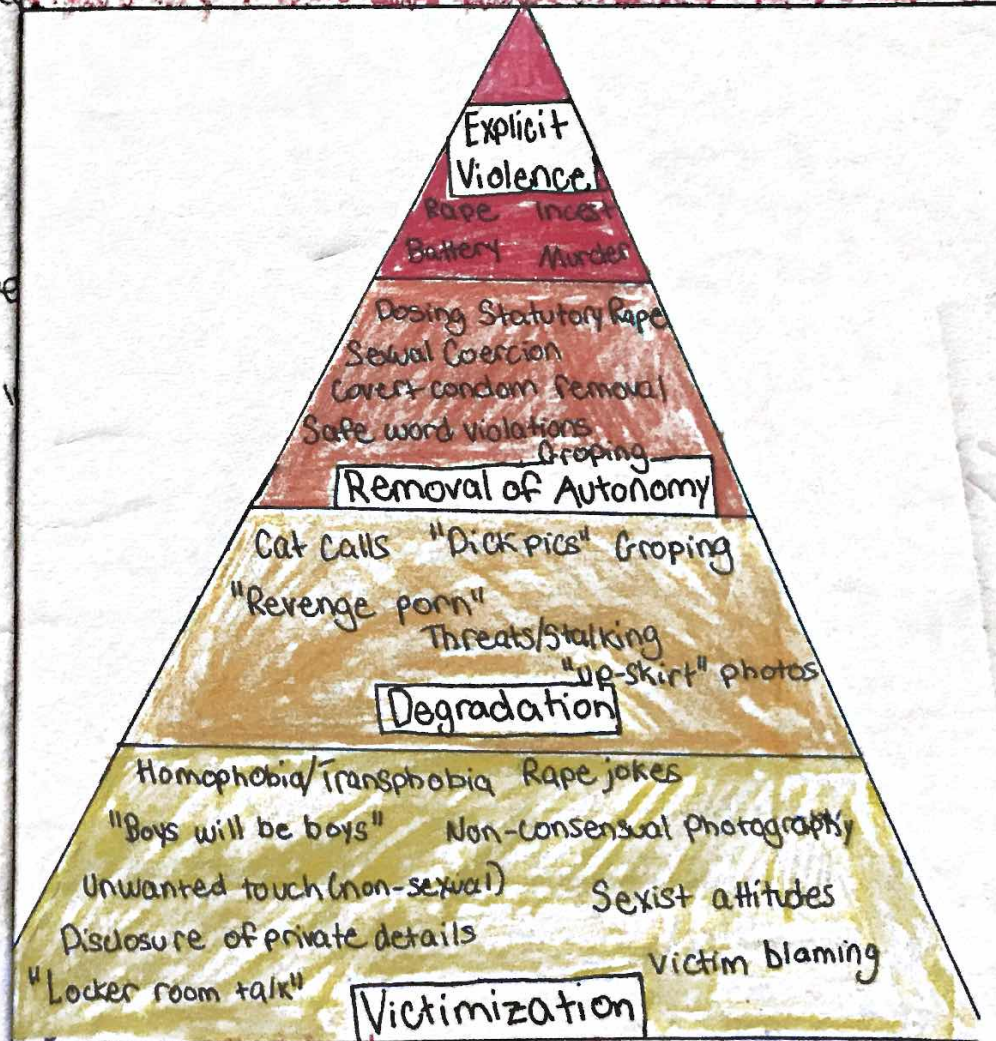 Explicit
Violence
Rape Incest
Battery Murder
Dosing Statutory Rape
Sexual Coercion
Covert condom removal
Safe word violations
Groping
Removal of Autonomy
Cat Calls "Dick pics" Groping
"Revenge porn"
Threats/Stalking
"up-skirt" photos
Degradation
Homophobia/Transphobia Rape jokes
"Boys will be boys" Non-consensual Photography
Unwanted touch (non-sexual) Sexist attitudes
Disclosure of private details
victim blaming
"Locker room talk"
Victimization